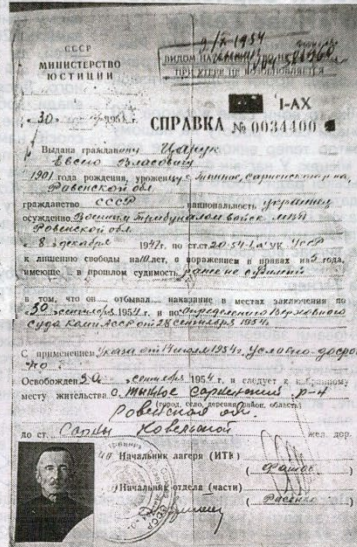 СССР
МИНИСТЕРСТВО
ЮСТИЦИИ
2/X - 1954
ВИДОМ НА
ПРИ УТЕРЕ НЕ ВОЗОБНОВЛЯЕТСЯ
1-АХ
30
СПРАВКА № 0034400
Выдана гражданину Цацук
Евсею Власовичу
1901 года рождения, уроженцу с. Сарненского р-на,
Ровенской обл.
гражданство СССР, национальность украинец
осужденно Военным трибуналом войск МВД
Ровенской обл.
8 декабря 194 г. по ст.ст. 20-54-1а УК УССР
к лишению свободы на 10 лет, с поражением в правах на 5 года,
имеющее в прошлом судимость ранее не судимый
в том, что он отбывал наказание в местах заключения по
30 сентября 1954 г. и по определению Верховного
Суда Коми АССР от 28 сентября 1954 г.
С применением Указа от 14 июля 1954 г. Условно-досроч
но.
Освобожден 30 сентября 1954 г. и следует к избранному
месту жительства Сарненский р-н
(город, село, деревня, район, область)
Ровенская обл.
до ст. Сарны Ковельской жел. дор.
Начальник лагеря (ИТК)
Начальник отдела (части)